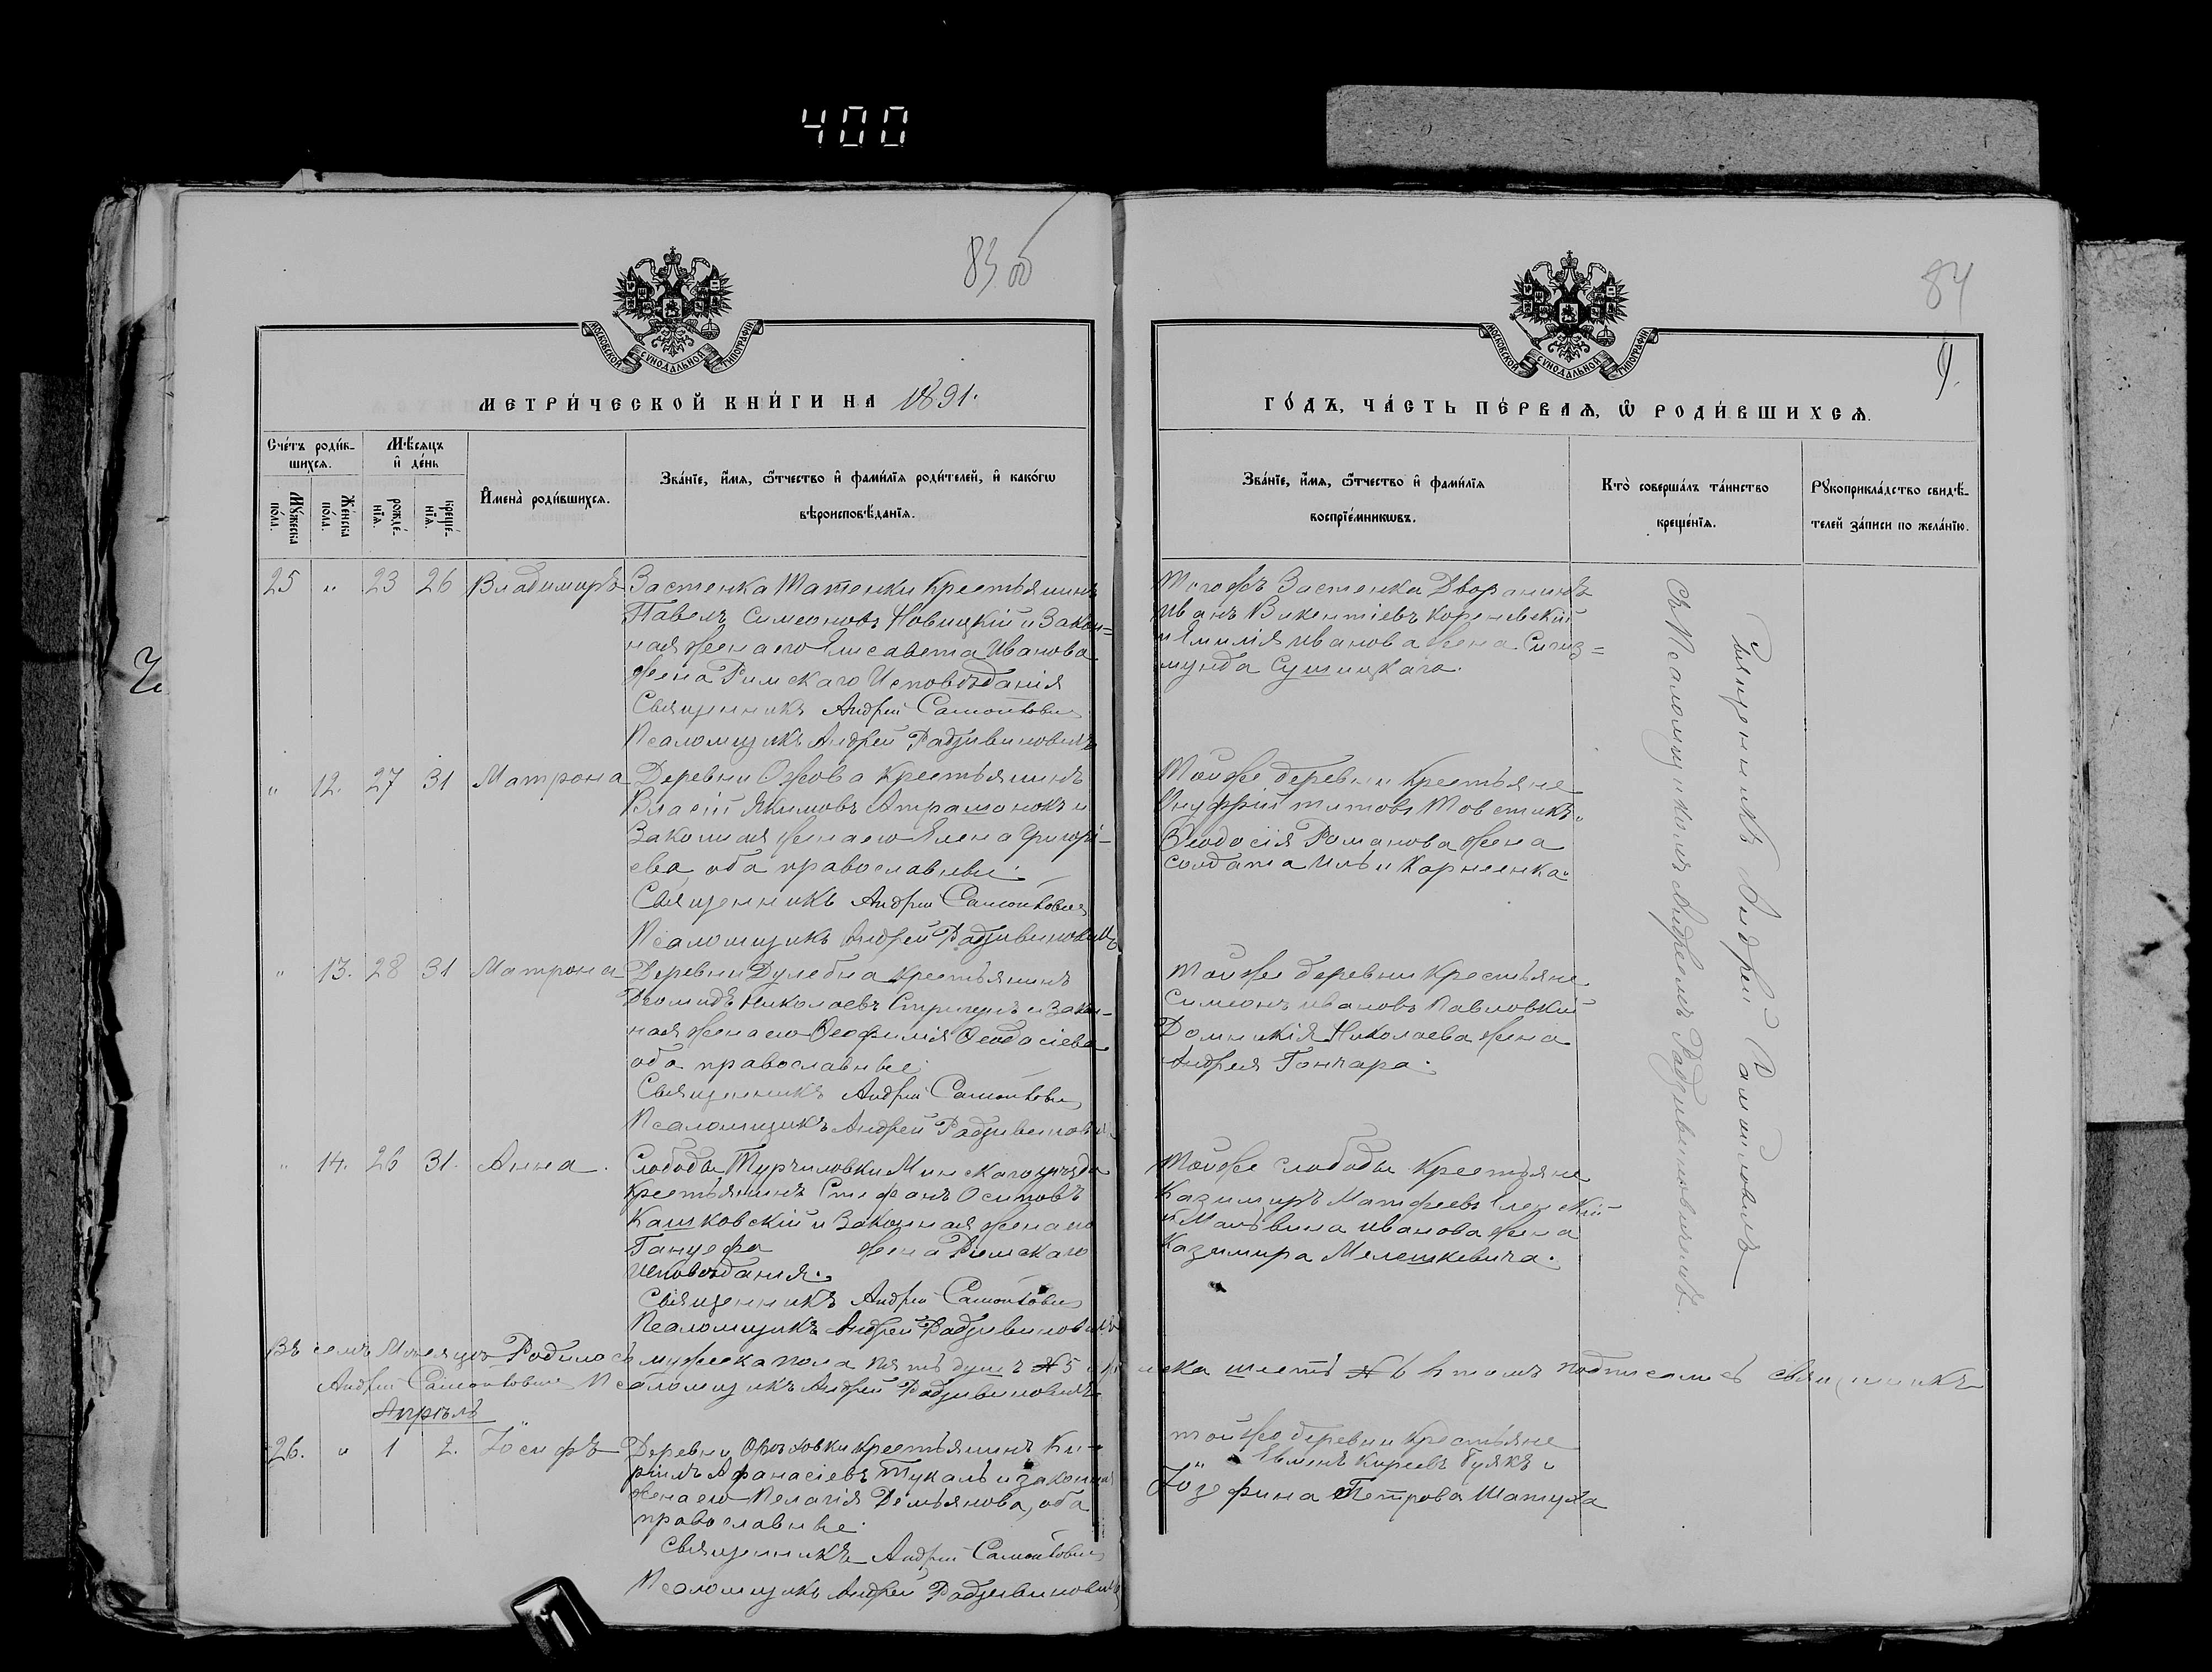 400
83 об
84
9.
МОСКОВСКОЙ СѴНОДАЛЬНОЙ ТИПОГРАФИИ
МОСКОВСКОЙ СѴНОДАЛЬНОЙ ТИПОГРАФИИ
МЕТРИ́ЧЕСКОЙ КНИ́ГИ НА 1891.
ГО́ДЪ, ЧА́СТЬ ПЕ́РВАѦ, Ѡ҆ РОДИ́ВШИХСѦ.
Сче́тъ роди́в-
шихсѧ.
Мꙋ́жеска по́ла.
Же́нска по́ла.
Мѣ́сѧцъ
и҆ де́нь
рожде́-нїѧ.
креще́-нїѧ.
И҆мена̀ роди́вшихсѧ.
Зва́нїе, и҆́мѧ, ѻ҆́тчество и҆ фами́лїѧ роди́телей, и҆ како́гѡ
вѣроисповѣ́данїѧ.
Зва́нїе, и҆́мѧ, ѻ҆́тчество и҆ фами́лїѧ
воспрїе́мникѡвъ.
Кто̀ соверша́лъ та́инство
креще́нїѧ.
Рꙋкоприкла́дство свидѣ́-
телей за́писи по жела́нїю.
25 " 23 26 Владимиръ
Застенка Татенки Крестьянинъ
Павелъ Симеоновъ Новицкій и Закон=
ная жена его Елисавета Иванова
жена Римскаго Исповѣданія
Священникъ Андрей Самойлович
Псаломщикъ Андрей Радзивиновичъ
Тогожъ Застенка Дворанинъ
Иванъ Викентіевъ Кореневскій
и Эмилія Иванова жена Сигиз=
мунда Сушицкаго.
" 12. 27 31 Матрона
Деревни Ожова Крестьянинъ
Власій Якимовъ Атрашонокъ и
Законная жена его Елена Григорі-
ева, оба православные.
Священникъ Андрей Самойлович
Псаломщикъ Андрей Радзивиновичъ
Тойже деревни Крестьяне
Онуфрій Титовъ Товстикъ и
Ѳеодосія Романова жена
солдата Ильи Корнеенка.
" 13. 28 31 Матрона
Деревни Дулебна Крестьянинъ
Діомидъ Николаевъ Стригунъ и Закон-
ная жена его Ѳеофимія Ѳеодосіева
оба православные.
Священникъ Андрей Самойлович
Псаломщикъ Андрей Радзивинович
Тойже деревни Крестьяне
Симеонъ Ивановъ Павловкій
Домникія Николаева жена
Андрея Гончара.
" 14. 26 31. Анна.
Слободы Турчиловки Минскаго уѣзда
Крестьянинъ Стефанъ Осиповъ
Кашковскій и Законная жена его
жена Римскаго
Исповѣданія.
Священникъ Андрей Самойлович
Псаломщикъ Андрей Радзивиновичъ
Тойже слободы Крестьяне
Казимиръ Матфеевъ
и Мальвина Иванова жена
Казимира Мелешкевича.
Священникъ Андрей Самойловичъ
съ Псаломщикомъ Андреемъ Радзивиновичемъ.
Въ семъ Мѣсяцѣ Родилось мужеска пола пять душъ № 5 женска шесть № 6 в томъ подписались священникъ
Андрей Самойлович Псаломщикъ Андрей Радзивиновичъ
Апрѣль
26. " 1 2. Іосифъ
Крестьянинъ Ки-
рилъ Афанасіевъ Тукалъ и законная
жена его Пелагія Демьянова, оба
православные.
Священникъ Андрей Самойлович
Псаломщикъ Андрей Радзивинович
Тойже деревни Крестьяне
Іозефина Петрова Шатуха